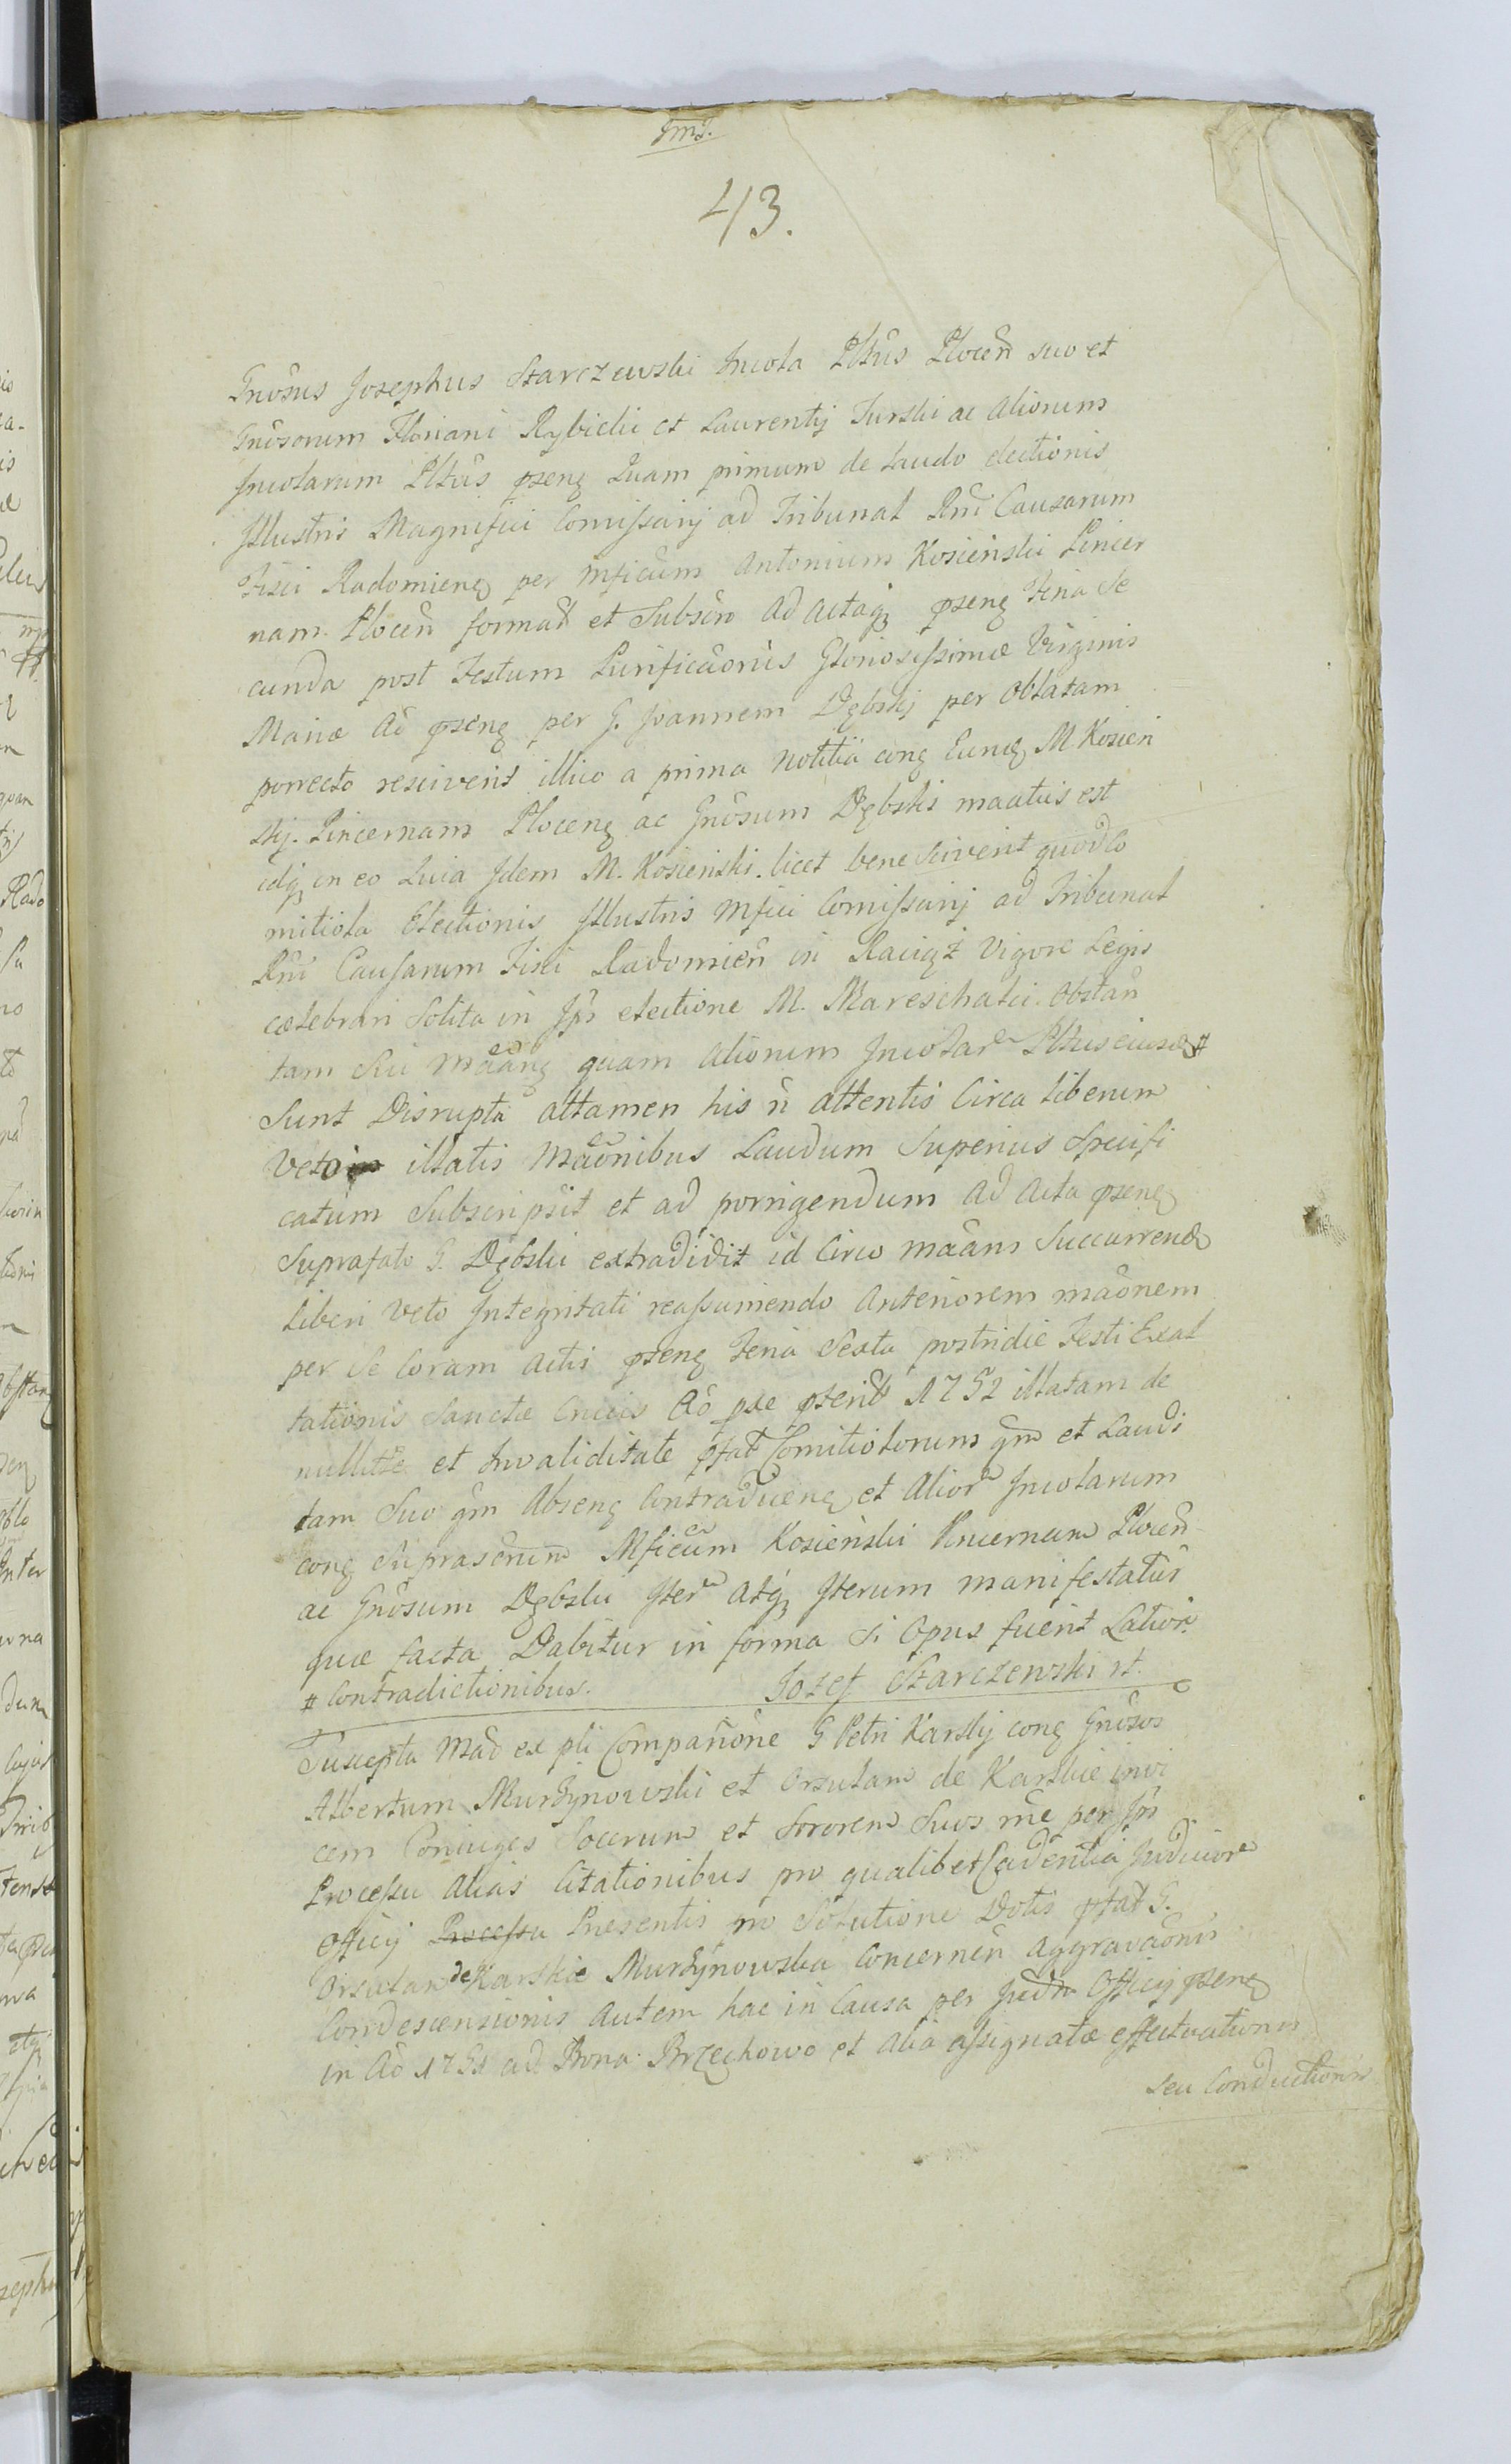 43.
Gnôsus Josephus Starczewski Incola Pltûs Plocen̄ suo et
Gnôsorum Floriani Rybicki et Laurentij Turski ac Aliorum
Incolarum Pltûs pseng Quam primum de Laudo electionis
Illustris Magnifici Comissarij ad Tribunal Rni Causarum
Fisci Radomieng per Mficum Antonium Kosieński Pincer
nam Plocen̄ format et Subscro Ad Actaq pseng Feria Se
cunda post Festum Purificaonis Gloriosissimæ Virginis
Mariæ Aō pseng per G. Joannem Dębski per Oblatam
porrecto resciverit illico a prima Notitia cong Eund M Kosien
skij. Pincernam Ploceng ac Gnôsum Dębski maatus est
idq in eo Quia Idem M. Kosieński. licet bene Sciverit quod Co
mitiola Electionis Illustris Mfici Comissarij ad Tribunal
Rni Causarum Fisci Radomien̄ in Raciąż Vigore Legis
cælebrari Solita in Ips electione M. Mareschalci Obstan̄
tam Sui Maang quam Aliorum Incolar Pltus eiusd #
Sunt Disrupta attamen his n̄ attentis Circa Liberum
Veto illatis Maonibus Laudum Superius Specifi
catum Subscripsit et ad porrigendum Ad Acta pseng
Suprafato G. Dębski extradidit id Circo maans Succurrend
Liberi Veto Integritati reassumendo Anteriorem maonem
per Se Coram Actis pseng Feria Sexta postridie Festi Exal
tationis Sanctæ Crucis Aō præ pterit 1752 illatam de
nullitte et Invaliditate pfat Comitiolorum qm et Laudi
tam Suo qm Abseng Contraduceng et Alior Incolarum
cong Suprascrum Mficum Kosieński Pincernam Plocen̄
ac Gnôsum Dębski Iter Atq Iterum manifestatus
quæ facta Dabitur in forma Si Opus fuerit Latior.
# Contradictionibus. Jozef Starczewski
Suscepta Mao ex pli Compan̄one G Petri Karskij cong Gnôsos
Albertum Murdzynowski et Orsulam de Karskie invi
cem Coniuges Socerum et Sororem Suos rne per Ips
Processu Alias Citationibus pro qualibet Cadentia Judicior
officij Processu Presentis pro Solutione Dotis pfat G.
Orsulam de Karskie Murdzynowska Concernen̄ Aggravaonis
Condescensionis Autem hac in Causa per Judm Officij pseng
in Aō 1751 ad Bona Brzechowo et Alia assignatæ effectuationis
seu Conductionis